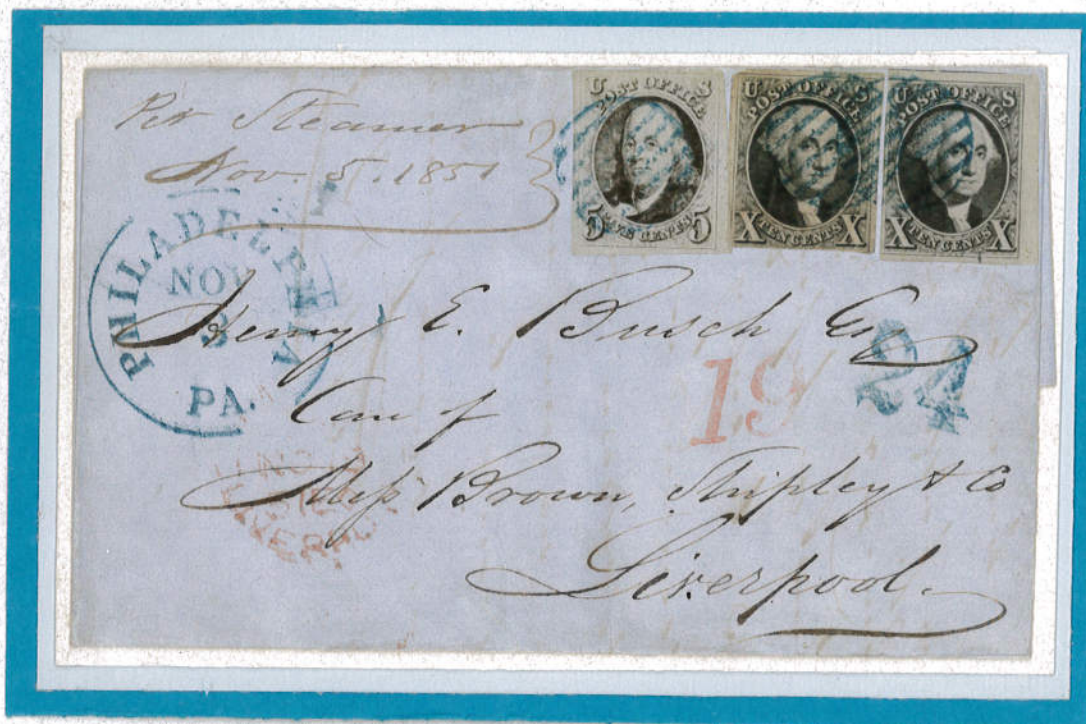 Per Steamer
Nov. 5. 1851
U S
POST OFFICE
5 FIVE CENTS 5
U S
POST OFFICE
X TEN CENTS X
U S
POST OFFICE
X TEN CENTS X
PHILADELPHIA
NOV
3
PA.
Henry E. Busch Esq
19
24
Care of
Mess Brown, Shipley & Co
Liverpool.